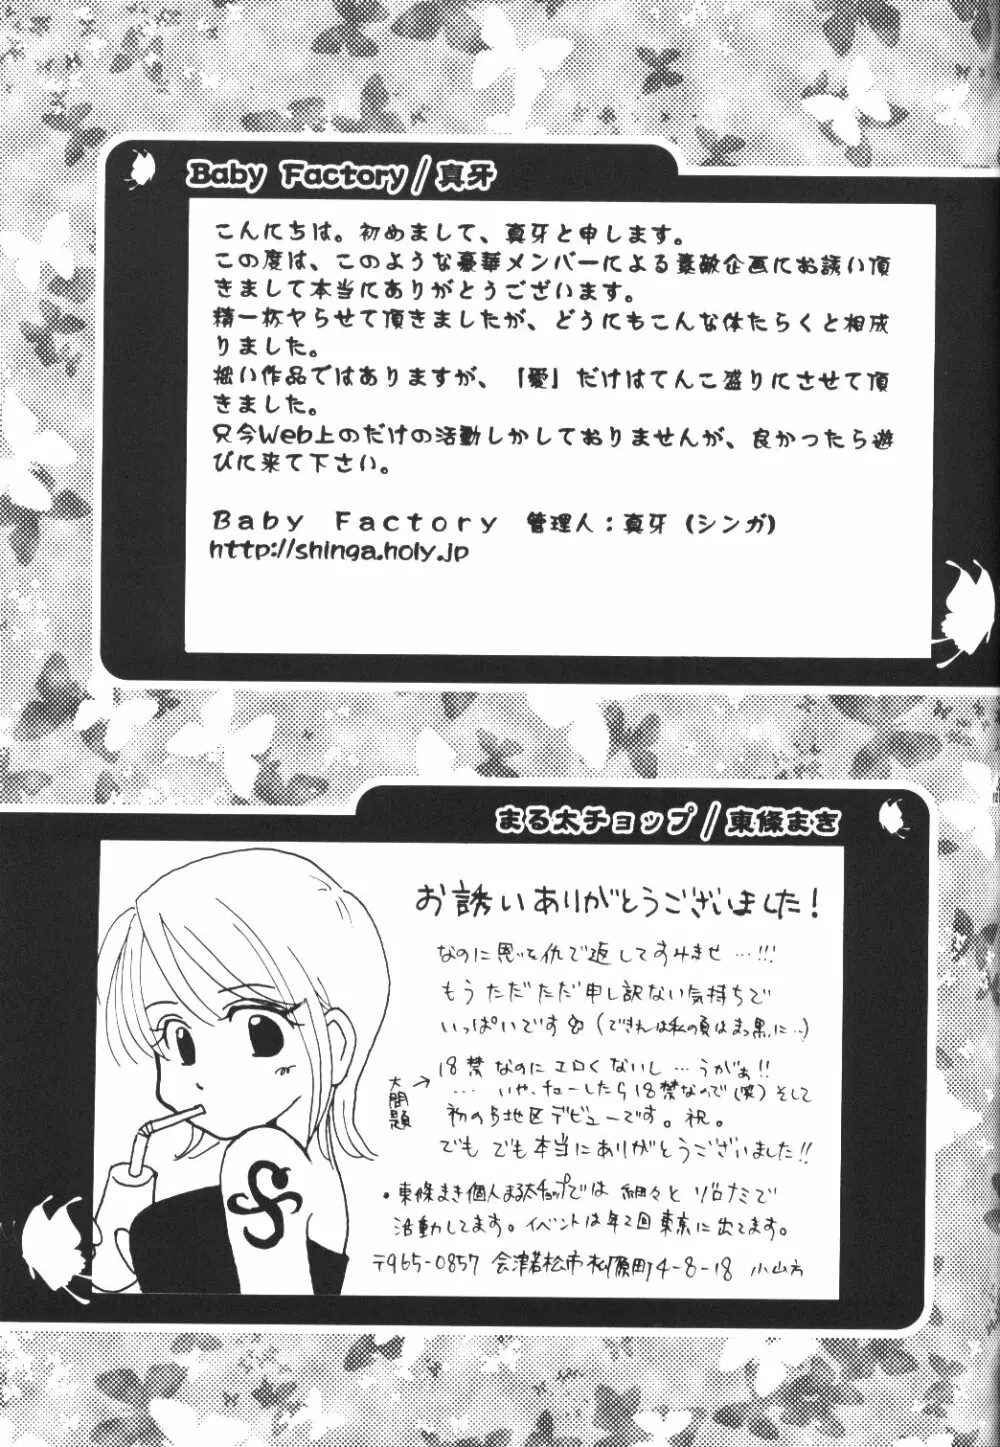 Baby Factory/真牙
こんにちは。初めまして、真牙と申します。
この度は、このような豪華メンバーによる素敵企画にお誘い頂
きまして本当にありがとうございます。
精一杯ヤらせて頂きましたが、どうにもこんな体たらくと相成
りました。
拙い作品ではありますが、「愛」だけはてんこ盛りにさせて頂
きました。
只今Web上のだけの活動しかしておりませんが、良かったら遊
びに来て下さい。
Baby Factory 管理人：真牙（シンガ）
http://shinga.holy.jp
まる太チョップ/東條まき
お誘いありがとうございました！
なのに恩を仇で返してすみませ…!!!
もう ただただ申し訳ない気持ちで
いっぱいです（できれば私の頁はまっ黒に…）
大問題→
18禁なのに エロくないし…うがぁ!!
…いや、チューしたら18禁なので(笑)そして
初の地区デビューです。祝。
でも でも本当にありがとうございました!!
・東條まき個人まる太チョップでは 細々と ゾロナミで
活動してます。イベントは年2回東京に出てます。
〒965-0857 会津若松市柳原町4-8-18 小山方